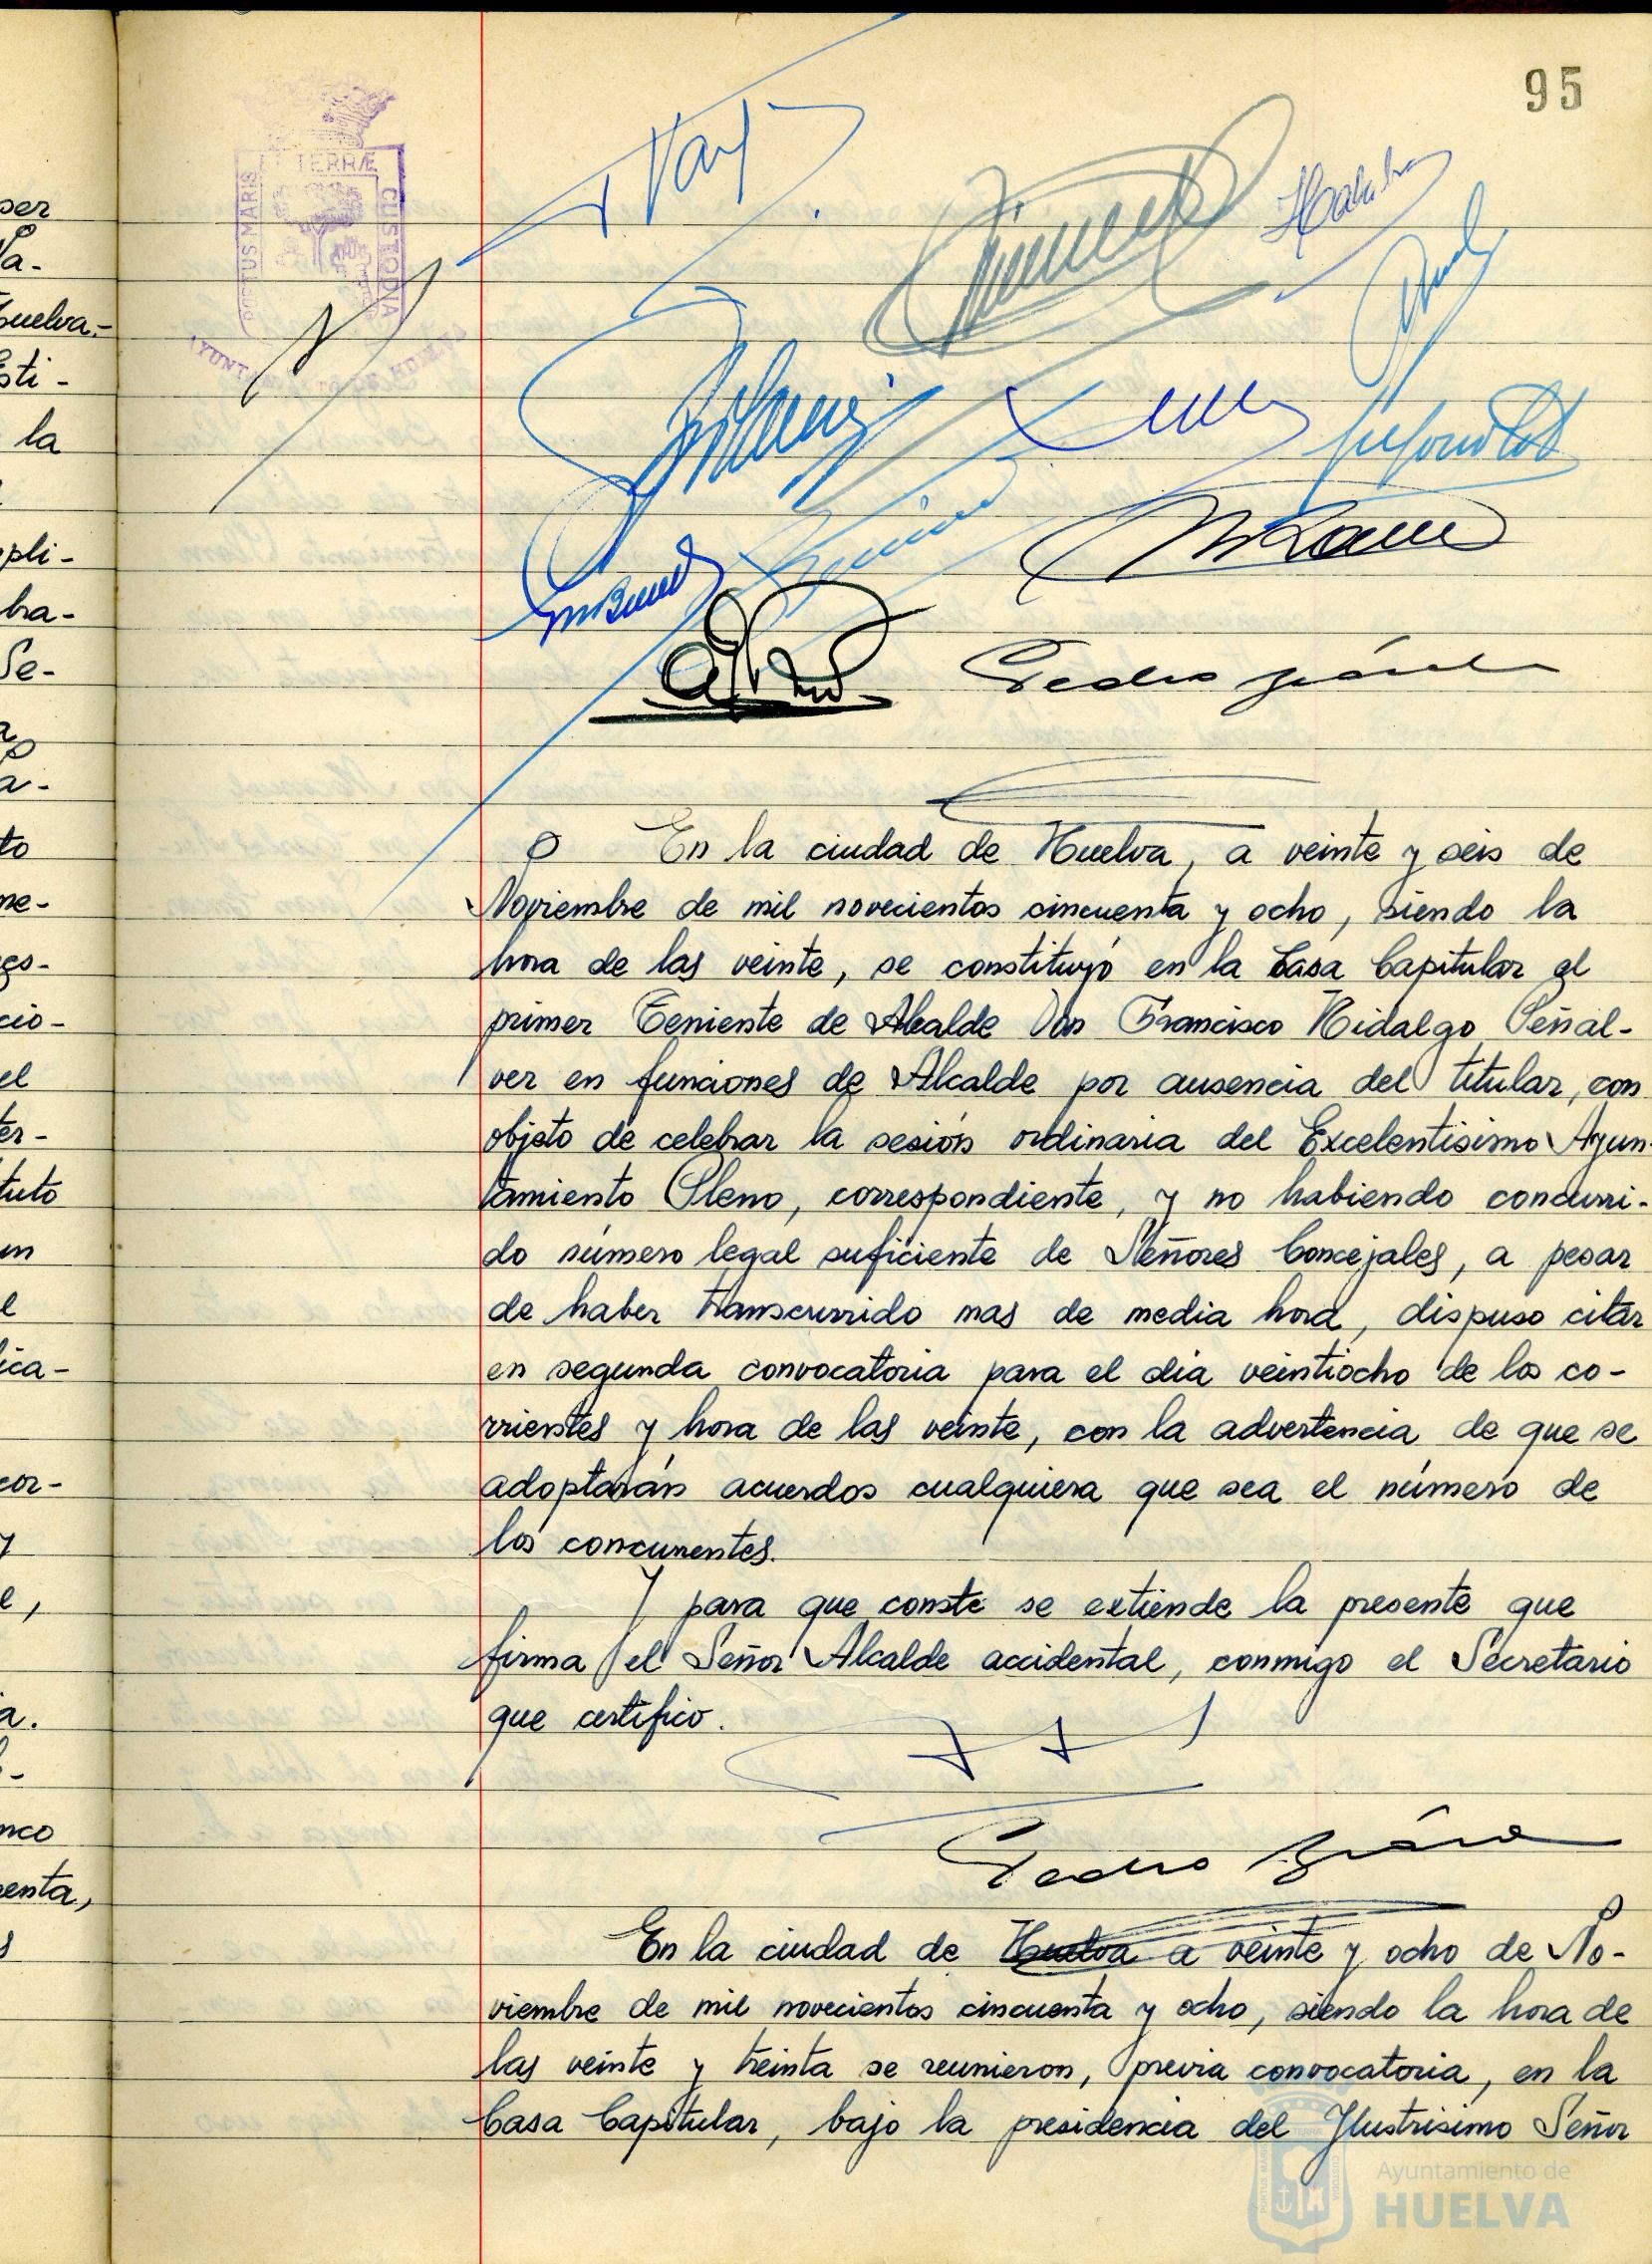 95
ET TERRÆ
PORTUS MARIS
CUSTODIA
ser
Va-
Huelva-
Esti-
la
pli-
bra-
Se-
a-
to
me-
ges-
cio-
el
ter-
tuto
un
ica-
cor-
y
e,
a.
nco
enta,
Pedro
En la ciudad de Huelva, a veinte y seis de
Noviembre de mil novecientos cincuenta y ocho, siendo la
hora de las veinte, se constituyó en la Casa Capitular el
primer Teniente de Alcalde Don Francisco Hidalgo Peñal-
ver en funciones de Alcalde por ausencia del titular, con
objeto de celebrar la sesión ordinaria del Excelentisimo Ayun-
tamiento Pleno, correspondiente, y no habiendo concurri-
do número legal suficiente de Señores Concejales, a pesar
de haber transcurrido mas de media hora, dispuso citar
en segunda convocatoria para el dia veintiocho de los co-
rrientes y hora de las veinte, con la advertencia de que se
adoptarán acuerdos cualquiera que sea el número de
los concurrentes.
Y para que conste se extiende la presente que
firma el Señor Alcalde accidental, conmigo el Secretario
que certifico.
Pedro
En la ciudad de Huelva a veinte y ocho de No-
viembre de mil novecientos cincuenta y ocho, siendo la hora de
las veinte y treinta se reunieron, previa convocatoria, en la
Casa Capitular, bajo la presidencia del Ilustrisimo Señor
Ayuntamiento de
HUELVA